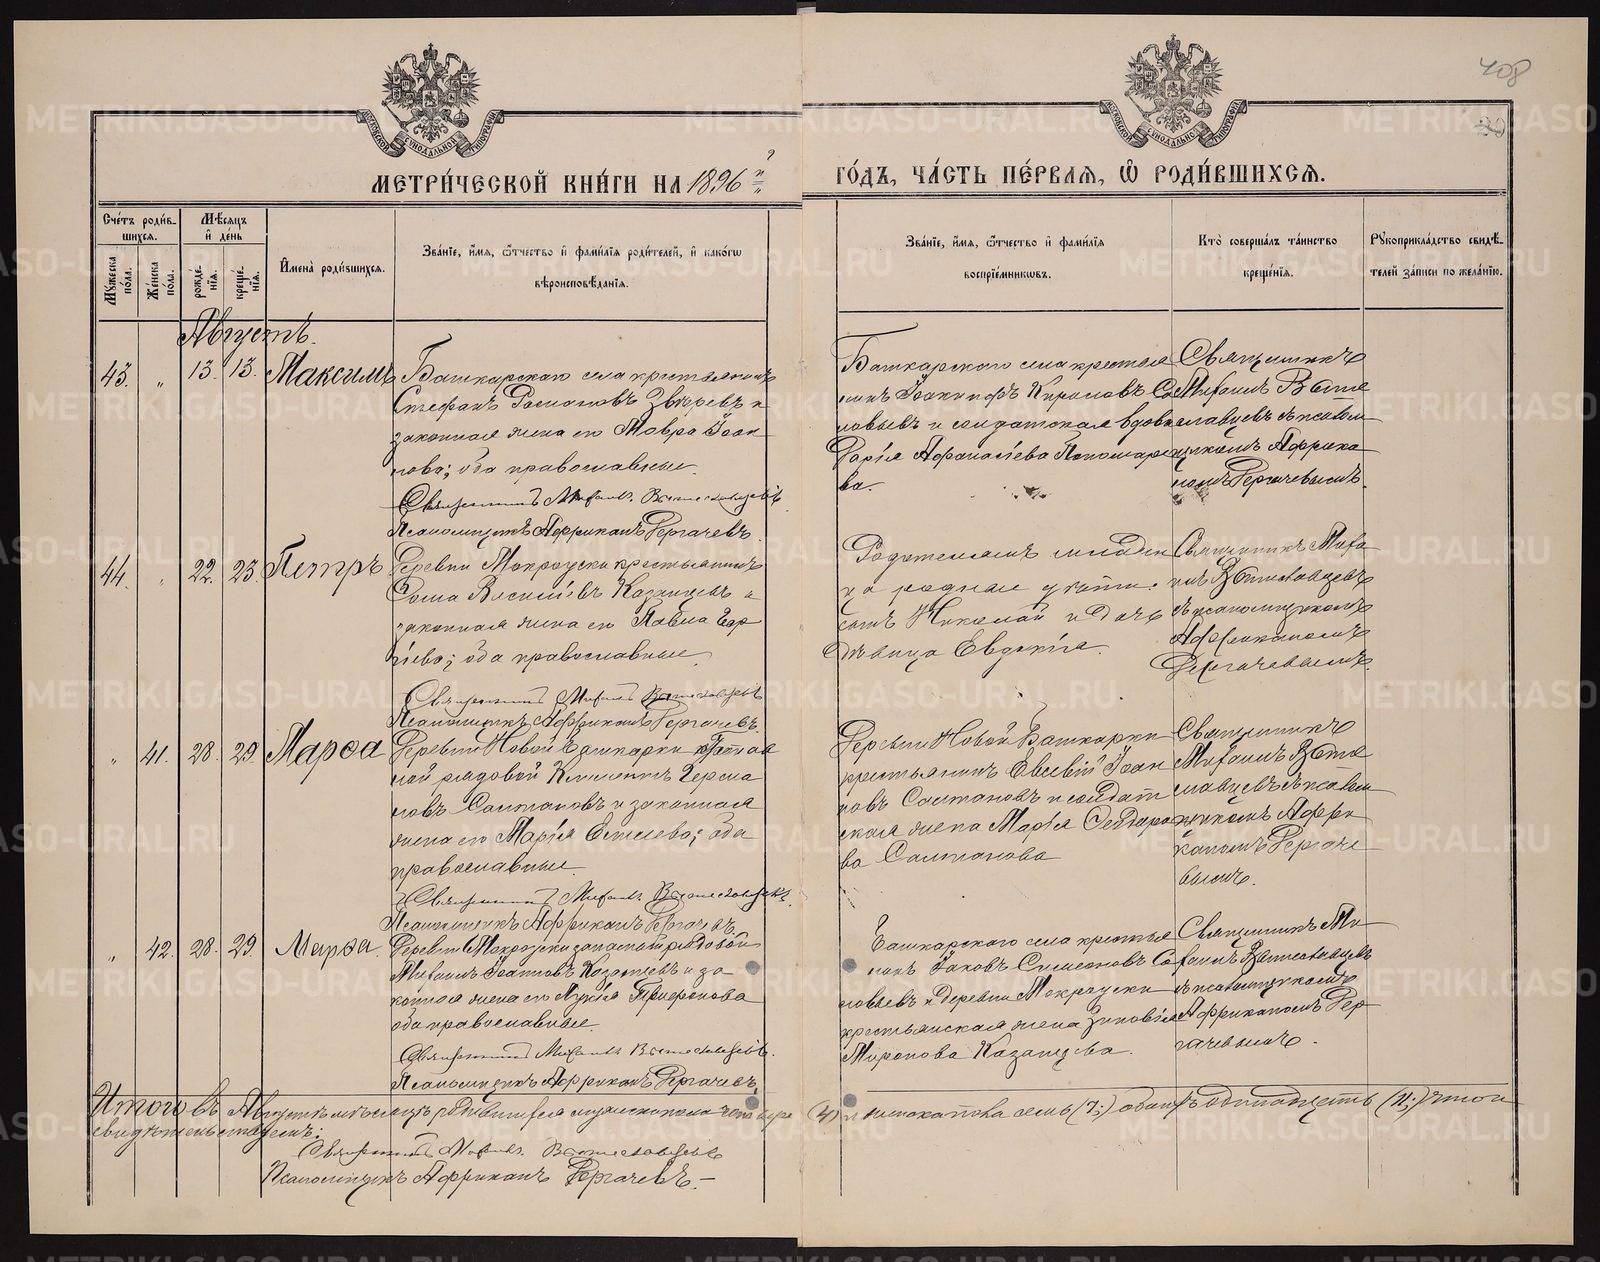 408
МЕТРИ́ЧЕСКОЙ КНИ́ГИ НА 1896 й
ГО́ДЪ, ЧА́СТЬ ПЕ́РВАѦ, Ѡ РОДИ́ВШИХСѦ.
Сче́тъ роди́в-
шихсѧ.
Мꙋ́жеска по́ла.
Же́нска по́ла.
Мѣ́сѧцъ
и҆ де́нь
рожде́нїѧ.
креще́нїѧ.
И҆мена̀ роди́вшихсѧ.
Зва́нїе, и҆́мѧ, ѻ҆́тчество и҆ фами́лїѧ роди́телей, и҆ како́гѡ
вѣроисповѣ́данїѧ.
Зва́нїе, и҆́мѧ, ѻ҆́тчество и҆ фами́лїѧ
воспрїе́мникѡвъ.
Кто̀ соверша́лъ та́инство
креще́нїѧ.
Рꙋкоприкла́дство свидѣ́-
телей за́писи по жела́нїю.
Августъ.
43. „ 13. 13. Максимъ
Башкарскаго села крестьянинъ
Стефанъ Романовъ Звѣревъ и
законная жена его Мавра Іоан
нова; оба православные.
Священникъ Михаилъ
Псаломщикъ Африканъ Дергачевъ.
Башкарскаго села крестья
нинъ Іоакимъ Кириловъ Со
ловьевъ и солдатская вдова
Дарія Афанасіева Пономаре
ва.
Священникъ
Михаилъ
съ псалом
щикомъ Африка
номъ Дергачевымъ.
44. „ 22. 23. Петръ
Деревни Мокроуски крестьянинъ
Ѳома Василіевъ Казанцевъ и
законная жена его Павла Геор
гіева; оба православные.
Священникъ Михаилъ
Псаломщикъ Африканъ Дергачевъ.
Родителямъ младен
ца родные дѣти:
сынъ Николай и дочь
дѣвица Евдокія.
Священникъ Миха
илъ
съ псаломщикомъ
Африканомъ
Дергачевымъ.
„ 41. 28. 29. Марѳа
Деревни Новой Башкарки
ной рядовой Климентъ Гераси
мовъ Салтановъ и законная
жена его Марія ; оба
православные.
Священникъ Михаилъ
Псаломщикъ Африканъ Дергачевъ.
Деревни Новой Башкарки
крестьянинъ Евсевій Іоан
новъ Салтановъ и солдат
ская жена Марія Ѳеодоро
ва Салтанова
Священникъ
Михаилъ
съ псалом
щикомъ Афри
каномъ Дергаче
вымъ.
„ 42. 28. 29. Марѳа.
Деревни Мокроуски запасный рядовой
Михаилъ Іоанновъ Казанцевъ и за
конная жена его Лукія Трифонова
оба православные.
Священникъ Михаилъ
Псаломщикъ Африканъ Дергачевъ.
Башкарскаго села крестья
нинъ Іаковъ Симеоновъ Со
ловьевъ и деревни Мокроуски
крестьянская жена Зиновія
Миронова Казанцева.
Священникъ Ми
хаилъ
съ псаломщикомъ
Африканомъ Дер
гачевымъ.
Итого въ Августѣ мѣсяцѣ родившихся мужеска пола четыре (4) и женска пола семь (7;) обоихъ одиннадцать (11;) въ том
свидѣтельствуемъ:
Священникъ Михаилъ
Псаломщикъ Африканъ Дергачевъ.
METRIKI.GASO-URAL.RU